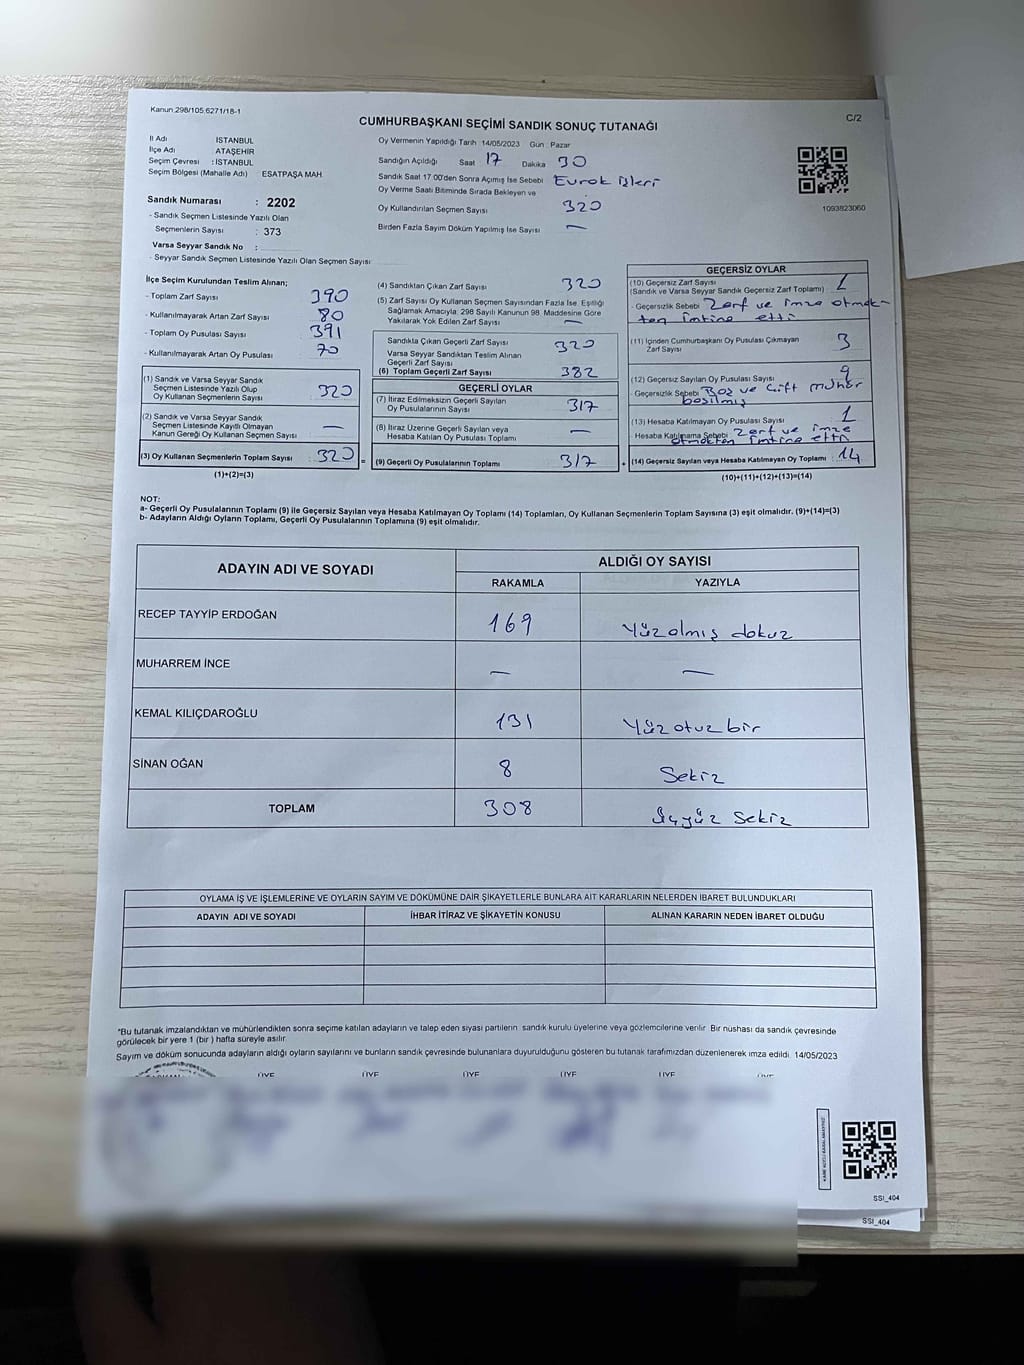 Kanun 298/105 6271/18-1
CUMHURBAŞKANI SEÇİMİ SANDIK SONUÇ TUTANAĞI
C/2
İl Adı İSTANBUL
İlçe Adı ATAŞEHİR
Seçim Çevresi : İSTANBUL
Seçim Bölgesi (Mahalle Adı) : ESATPAŞA MAH.
Sandık Numarası : 2202
- Sandık Seçmen Listesinde Yazılı Olan
Seçmenlerin Sayısı : 373
Varsa Seyyar Sandık No :
- Seyyar Sandık Seçmen Listesinde Yazılı Olan Seçmen Sayısı:
Oy Vermenin Yapıldığı Tarih 14/05/2023 Gün : Pazar
Sandığın Açıldığı Saat 17 Dakika 30
Sandık Saat 17.00'den Sonra Açımış İse Sebebi Evrak işleri
Oy Verme Saati Bitiminde Sırada Bekleyen ve
Oy Kullandırılan Seçmen Sayısı 320
Birden Fazla Sayım Döküm Yapılmış İse Sayısı —
1093823060
İlçe Seçim Kurulundan Teslim Alınan;
- Toplam Zarf Sayısı 390
- Kullanılmayarak Artan Zarf Sayısı 80
- Toplam Oy Pusulası Sayısı 391
- Kullanılmayarak Artan Oy Pusulası 70
(1) Sandık ve Varsa Seyyar Sandık
Seçmen Listesinde Yazılı Olup
Oy Kullanan Seçmenlerin Sayısı 320
(2) Sandık ve Varsa Seyyar Sandık
Seçmen Listesinde Kayıtlı Olmayan
Kanun Gereği Oy Kullanan Seçmen Sayısı —
(3) Oy Kullanan Seçmenlerin Toplam Sayısı : 320
(1)+(2)=(3)
(4) Sandıktan Çıkan Zarf Sayısı 320
(5) Zarf Sayısı Oy Kullanan Seçmen Sayısından Fazla İse, Eşitliği
Sağlamak Amacıyla, 298 Sayılı Kanunun 98. Maddesine Göre
Yakılarak Yok Edilen Zarf Sayısı —
Sandıkla Çıkan Geçerli Zarf Sayısı 320
Varsa Seyyar Sandıktan Teslim Alınan
Geçerli Zarf Sayısı
(6) Toplam Geçerli Zarf Sayısı 382
GEÇERLİ OYLAR
(7) İtiraz Edilmeksizin Geçerli Sayılan
Oy Pusulalarının Sayısı 317
(8) İtiraz Üzerine Geçerli Sayılan veya
Hesaba Katılan Oy Pusulası Toplamı —
= (9) Geçerli Oy Pusulalarının Toplamı 317
GEÇERSİZ OYLAR
(10) Geçersiz Zarf Sayısı
(Sandık ve Varsa Seyyar Sandık Geçersiz Zarf Toplamı) : 1
- Geçersizlik Sebebi Zarf ve imza atmak-
tan imtina etti
(11) İçinden Cumhurbaşkanı Oy Pusulası Çıkmayan
Zarf Sayısı 3
(12) Geçersiz Sayılan Oy Pusulası Sayısı 9
- Geçersizlik Sebebi Boş ve çift mühür
basılmış
(13) Hesaba Katılmayan Oy Pusulası Sayısı 1
Hesaba Katılmama Sebebi Zarf ve imza
atmaktan imtina etti
+ (14) Geçersiz Sayılan veya Hesaba Katılmayan Oy Toplamı : 14
(10)+(11)+(12)+(13)=(14)
NOT:
a- Geçerli Oy Pusulalarının Toplamı (9) ile Geçersiz Sayılan veya Hesaba Katılmayan Oy Toplamı (14) Toplamları, Oy Kullanan Seçmenlerin Toplam Sayısına (3) eşit olmalıdır. (9)+(14)=(3)
b- Adayların Aldığı Oyların Toplamı, Geçerli Oy Pusulalarının Toplamına (9) eşit olmalıdır.
ADAYIN ADI VE SOYADI ALDIĞI OY SAYISI
RAKAMLA YAZIYLA
RECEP TAYYİP ERDOĞAN 169 Yüzolmış dokuz
MUHARREM İNCE — —
KEMAL KILIÇDAROĞLU 131 Yüz otuz bir
SİNAN OĞAN 8 Sekiz
TOPLAM 308 Üçyüz Sekiz
OYLAMA İŞ VE İŞLEMLERİNE VE OYLARIN SAYIM VE DÖKÜMÜNE DAİR ŞİKAYETLERLE BUNLARA AİT KARARLARIN NELERDEN İBARET BULUNDUKLARI
ADAYIN ADI VE SOYADI İHBAR İTİRAZ VE ŞİKAYETİN KONUSU ALINAN KARARIN NEDEN İBARET OLDUĞU
*Bu tutanak imzalandıktan ve mühürlendikten sonra seçime katılan adayların ve talep eden siyasi partilerin sandık kurulu üyelerine veya gözlemcilerine verilir. Bir nüshası da sandık çevresinde
görülecek bir yere 1 (bir ) hafta süreyle asılır.
Sayım ve döküm sonucunda adayların aldığı oyların sayılarını ve bunların sandık çevresinde bulunanlara duyurulduğunu gösteren bu tutanak tarafımızdan düzenlenerek imza edildi. 14/05/2023
ÜYE ÜYE ÜYE ÜYE ÜYE ÜYE
SSI_404
SSI_404